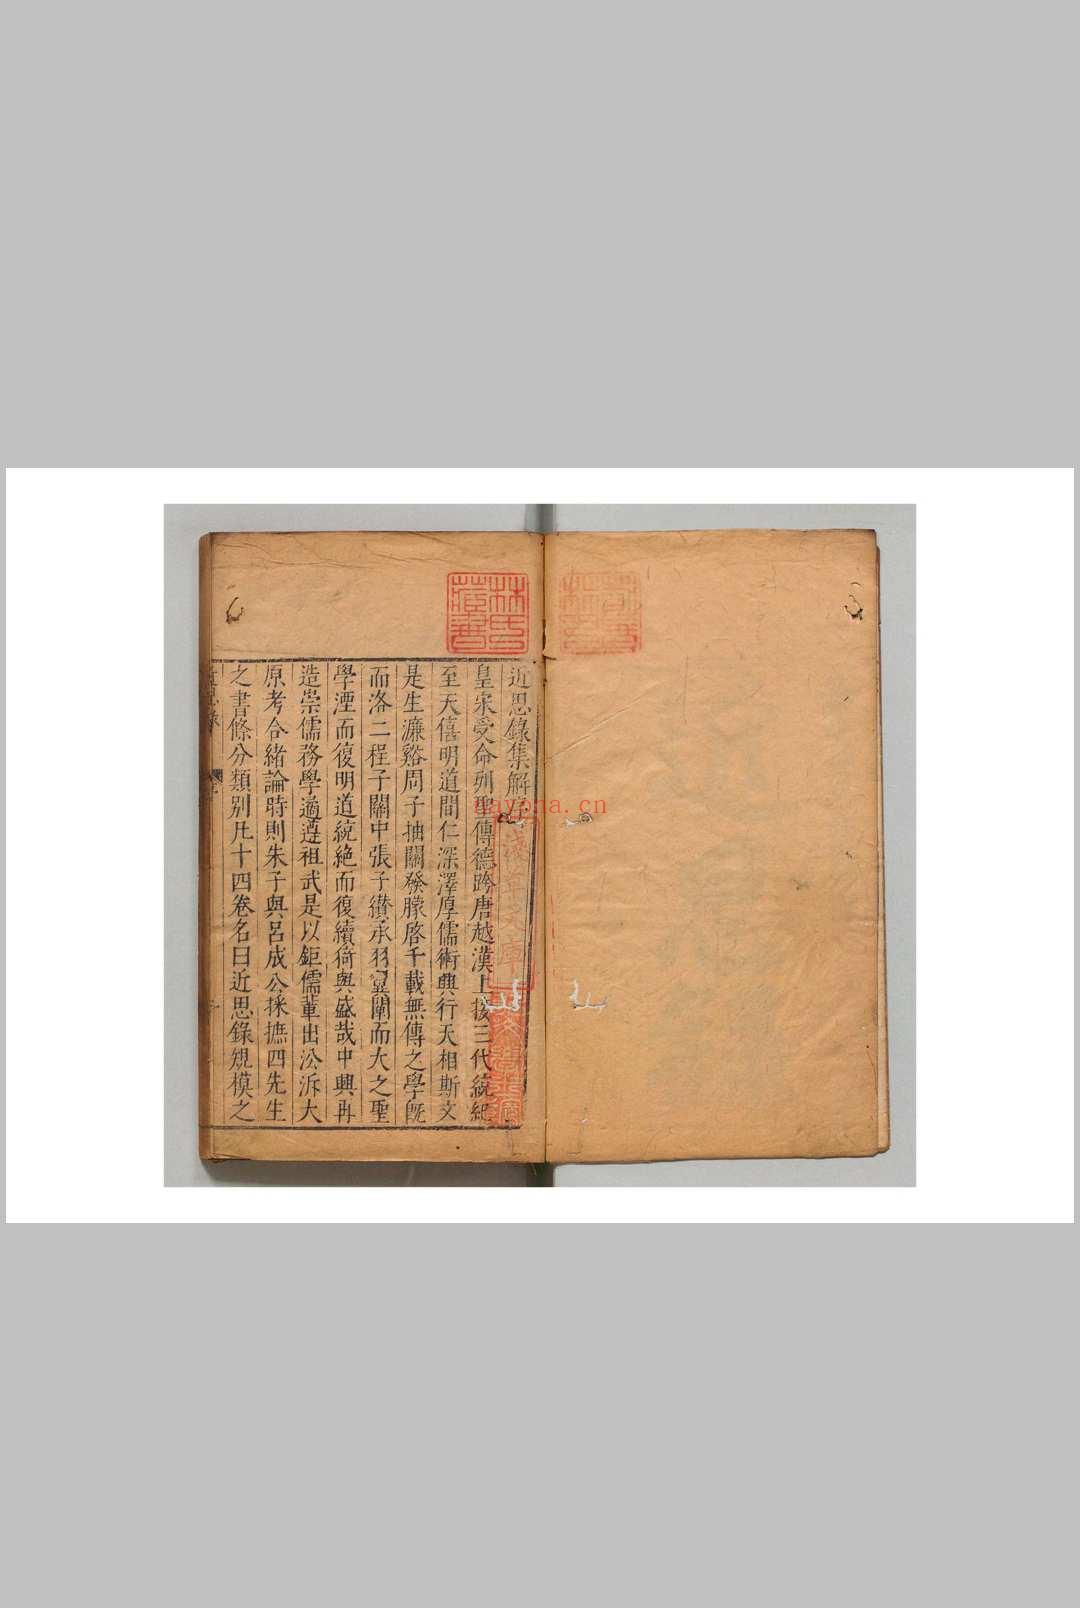 近思錄集解序
皇宋受命列聖傳德跨唐越漢上接三代統紀
至天僖明道間仁深澤厚儒術興行天相斯文
是生濂谿周子抽關發朦啓千載無傳之學旣
而洛二程子關中張子纘承羽翼闡而大之聖
學湮而復明道統絶而復續猗與盛哉中興再
造崇儒務學遹遵祖武是以鉅儒輩出沿泝大
原考合緒論時則朱子與呂成公採摭四先生
之書條分類别凡十四卷名曰近思錄規模之
近思錄
林氏藏書
淺草文庫
nayona.cn